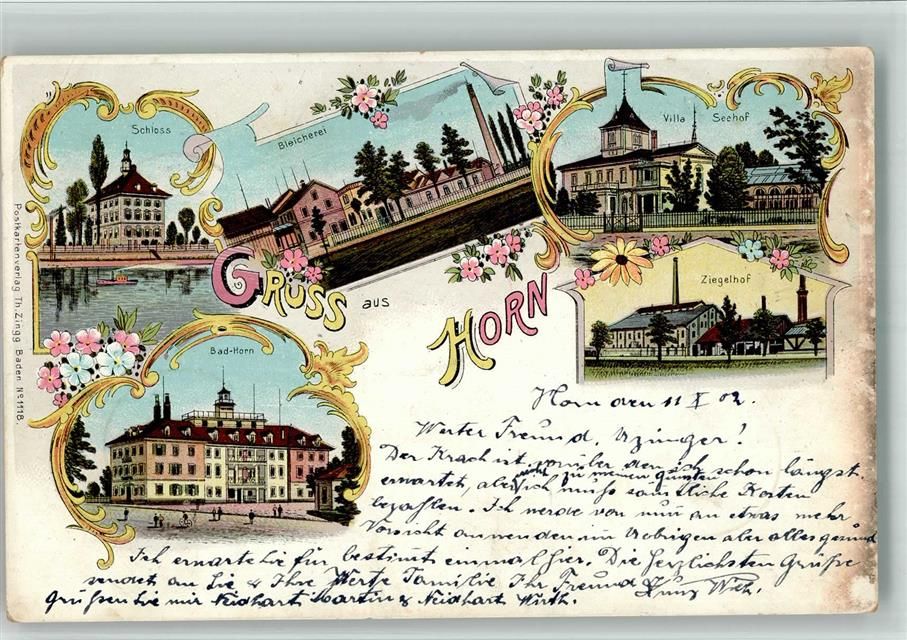 Schloss
Bleicherei
Villa Seehof
Ziegelhof
Gruss aus Horn
Bad-Horn
Postkartenverlag Th. Zingg Baden No 1118.
Horn den 11 X 02.
Werter Freund,
Der Krach ist vorüber den ich schon längst
nicht zu meinen gunsten
erwartet, aber ich muss sämtliche Kosten
bezahlen. Ich werde von nun an etwas mehr
Vorsicht anwenden im Uebrigen aber alles gesund
Ich erwarte Sie für bestimt einmal hier. Die herzlichsten Grüsse
sendet an Sie & Ihre Werte Familie Ihr Freund
Grüssen Sie mir Neidhart Martin & Neidhart Wirth.